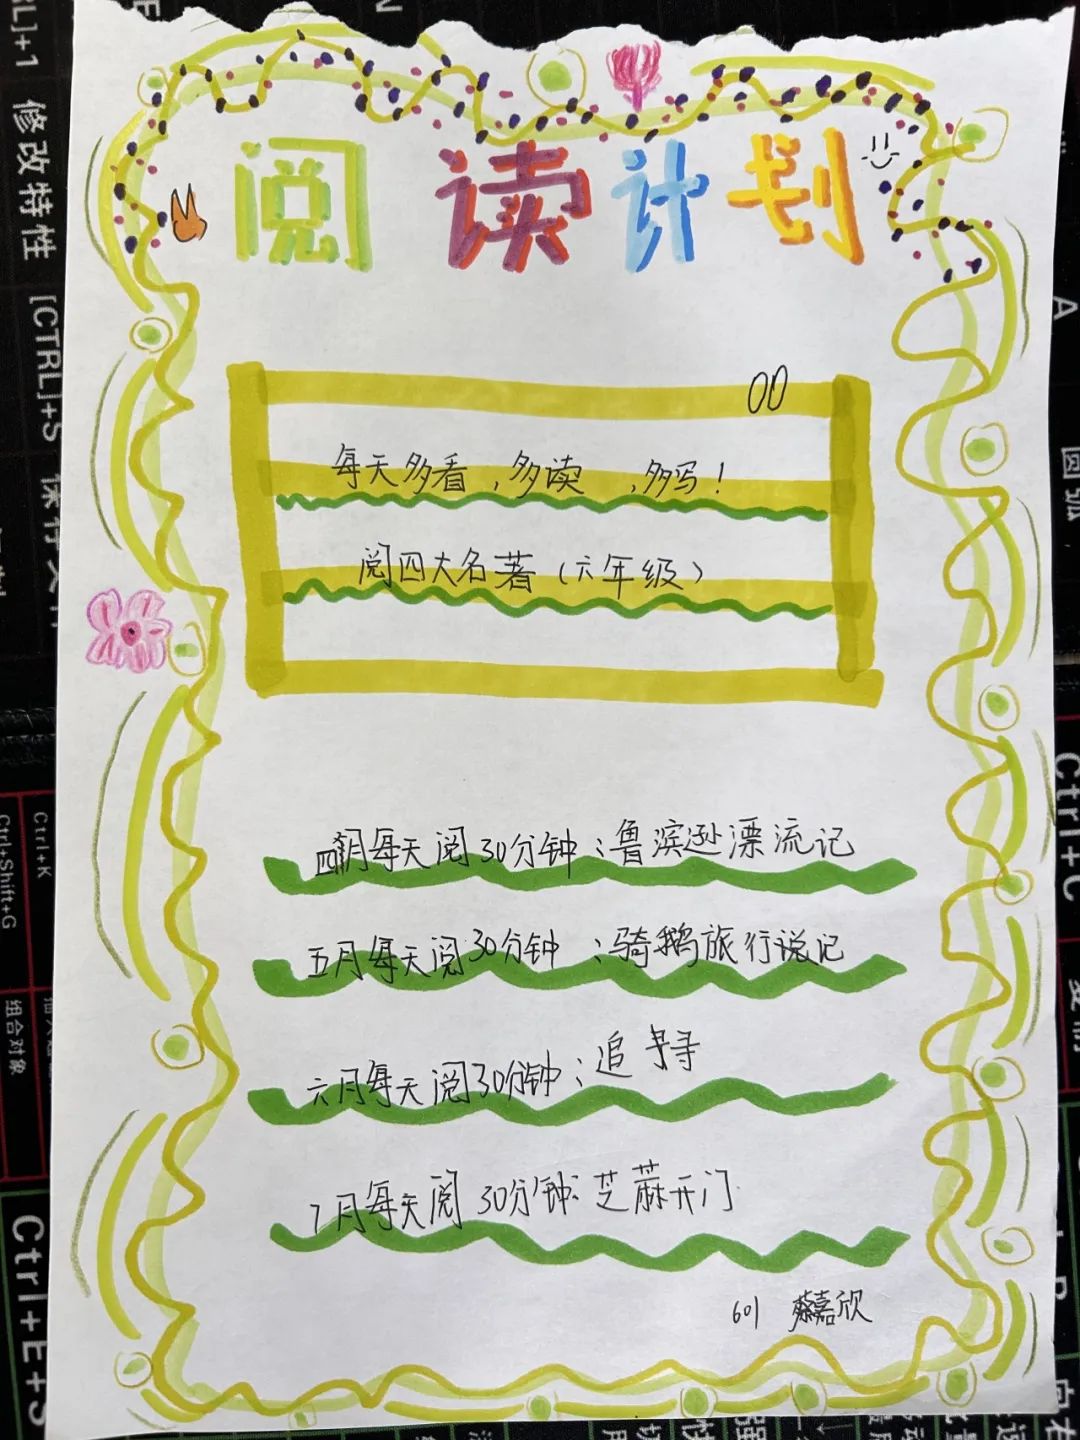 阅读计划
每天多看,多读,多写!
阅四大名著(六年级)
四月每天阅30分钟:鲁滨逊漂流记
五月每天阅30分钟:骑鹅旅行说记
六月每天阅30分钟:追寻
7月每天阅30分钟:芝麻开门
601 蔡嘉欣
修改特性
[CTRL]+S
Ctrl+K
Ctrl+Shift+G
组合对象
Ctrl+E+S
A
圆弧
Ctrl+C